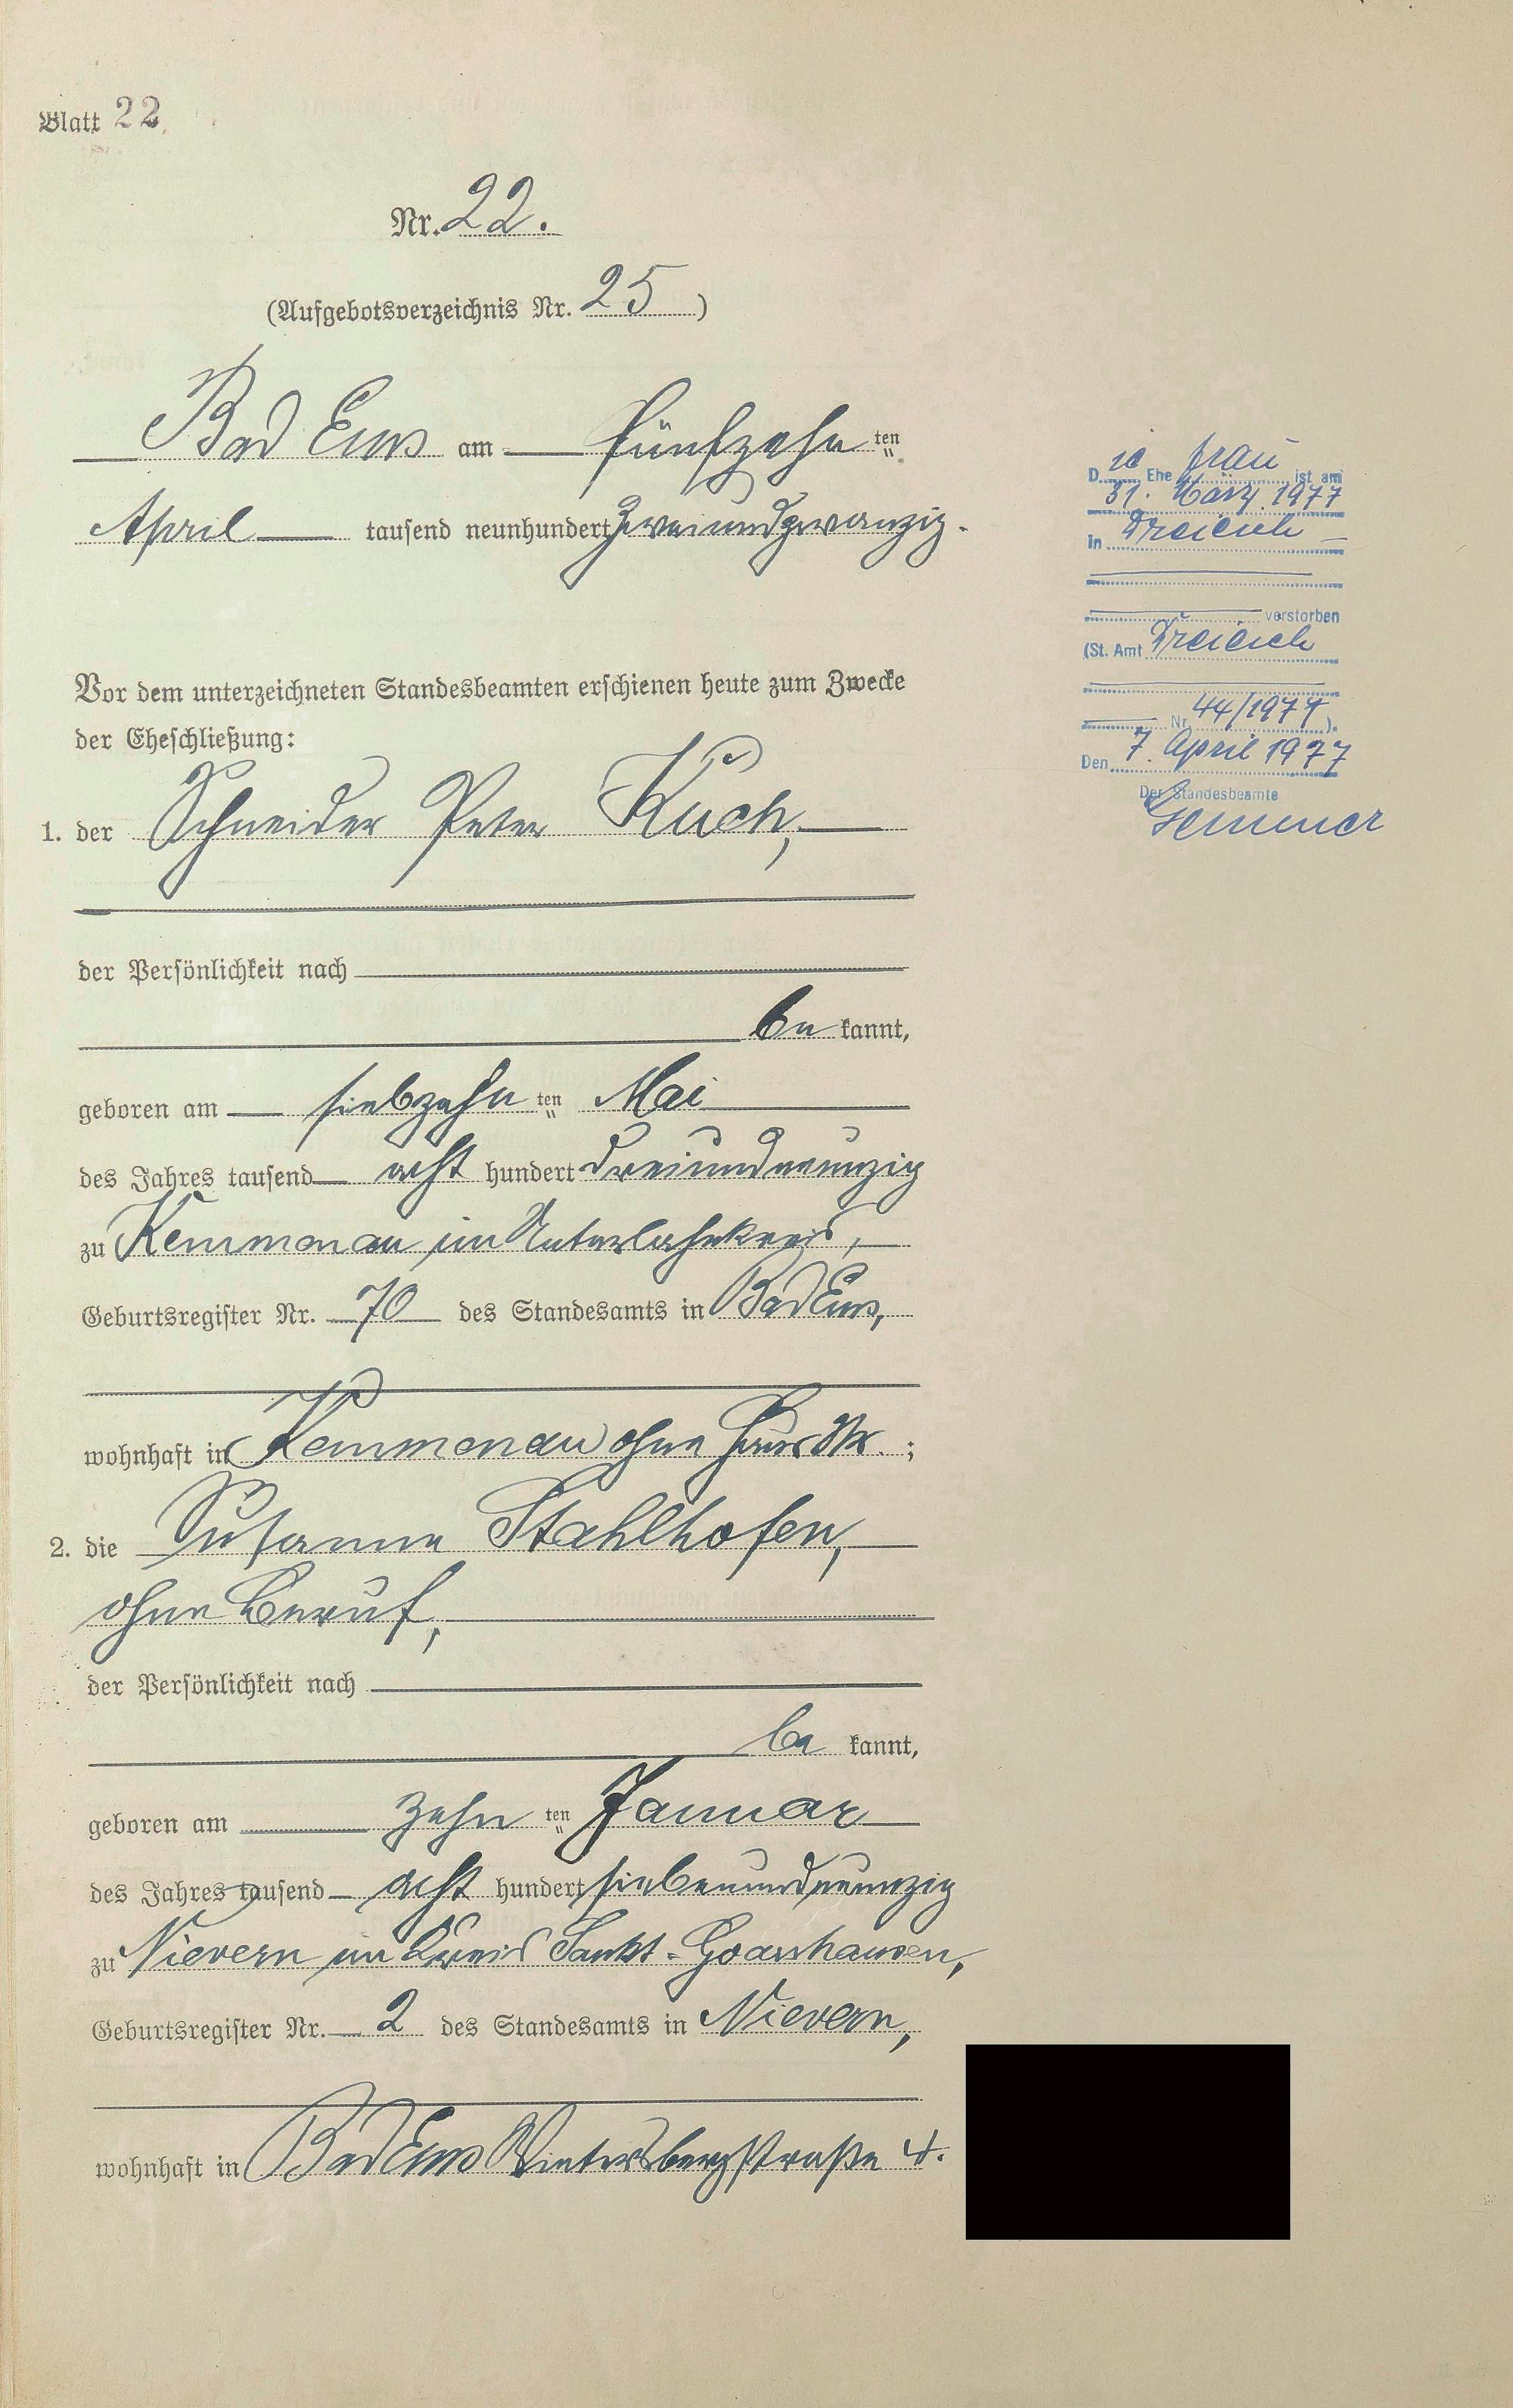 Blatt 22.
Nr. 22.
(Aufgebotsverzeichnis Nr. 25)
Bad Ems am fünfzehn ten
April tausend neunhundert zweiundzwanzig.
Vor dem unterzeichneten Standesbeamten erschienen heute zum Zwecke
der Eheschließung:
1. der Schneider Peter Kuch,
der Persönlichkeit nach
be kannt,
geboren am siebzehn ten Mai
des Jahres tausend acht hundert dreiundneunzig
zu Kemmenau im Unterlahnkreis,
Geburtsregister Nr. 70 des Standesamts in Bad Ems,
wohnhaft in Kemmenau ohne Haus Nr.;
2. die Susanna Stahlhofen,
ohne Beruf,
der Persönlichkeit nach
be kannt,
geboren am zehn ten Januar
des Jahres tausend acht hundert siebenundneunzig
zu Nievern im Kreis Sankt-Goarshausen,
Geburtsregister Nr. 2 des Standesamts in Nievern,
wohnhaft in Bad Ems Wintersbergstraße 4.
Die Ehefrau ist am
31. März 1977
in Dreieich
verstorben
(St. Amt Dreieich
Nr. 44/1977).
Den 7. April 1977
Der Standesbeamte